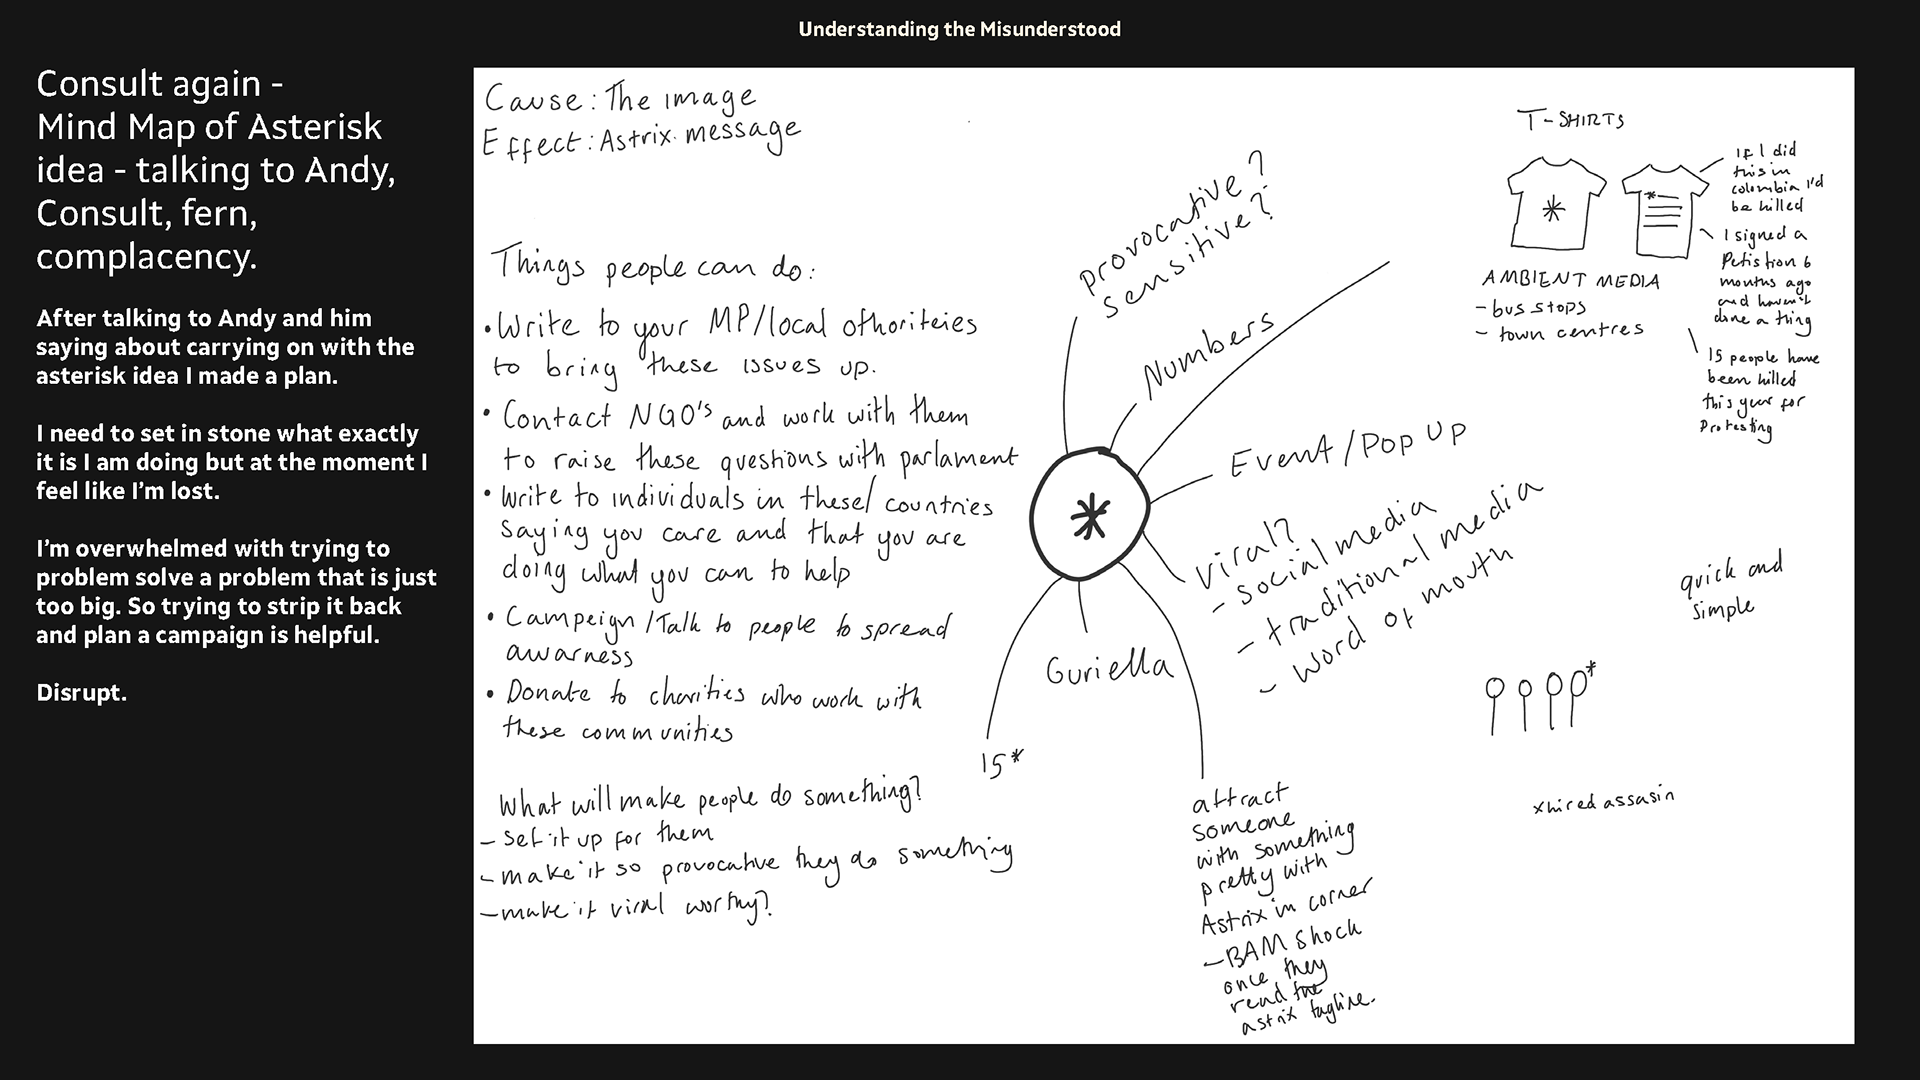 Understanding the Misunderstood
Consult again -
Mind Map of Asterisk
idea - talking to Andy,
Consult, fern,
complacency.
After talking to Andy and him
saying about carrying on with the
asterisk idea I made a plan.
I need to set in stone what exactly
it is I am doing but at the moment I
feel like I'm lost.
I'm overwhelmed with trying to
problem solve a problem that is just
too big. So trying to strip it back
and plan a campaign is helpful.
Disrupt.
Cause: The image
Effect: Astrix message
Things people can do:
• Write to your MP/local othoriteies
to bring these issues up.
• Contact NGO's and work with them
to raise these questions with parlament
• Write to individuals in these/ countries
saying you care and that you are
doing what you can to help
• Campeign/Talk to people to spread
awarness
• Donate to charities who work with
these communities
What will make people do something?
- set it up for them
- make it so provocative they do something
- make it viral worthy?
provocative?
sensitive?
Numbers
*
Event/Pop Up
viral?
- social media
- traditional media
- word of mouth
Guriella
15*
attract
someone
with something
pretty with
Astrix in corner
- BAM shock
once they
read the
astrix tagline.
T-SHIRTS
*
*
If I did
this in
colombia I'd
be killed
I signed a
Petistion 6
months ago
and haven't
done a thing
15 people have
been killed
this year for
Protesting
AMBIENT MEDIA
- bus stops
- town centres
quick and
simple
*
xhired assasin